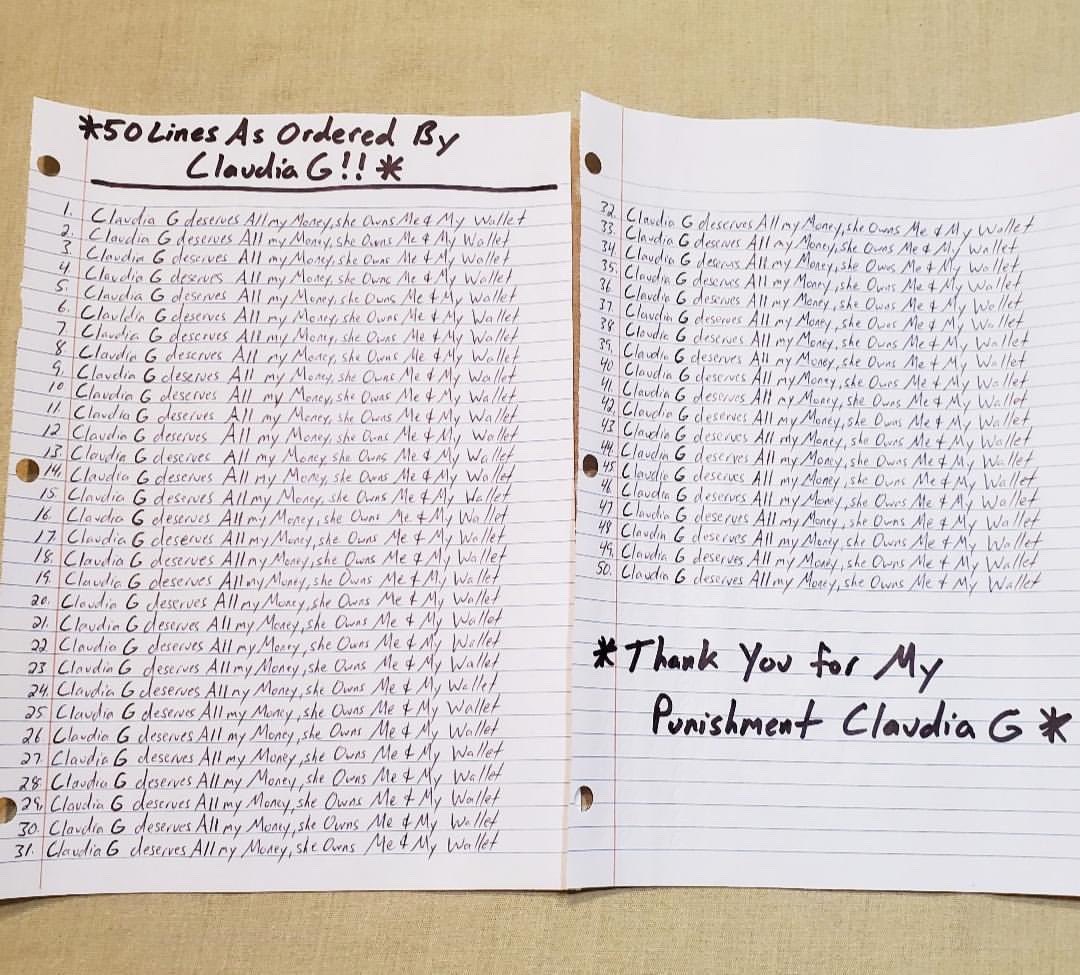 *50 Lines As Ordered By
Claudia G!! *
1. Claudia G deserves All my Money, she Owns Me & My Wallet
2. Claudia G deserves All my Money, she Owns Me & My Wallet
3. Claudia G deserves All my Money, she Owns Me & My Wallet
4 Claudia G deserves All my Money, she Owns Me & My Wallet
5. Claudia G deserves All my Money, she Owns Me & My Wallet
6. Clauldia G deserves All my Money, she Owns Me & My Wallet
7. Claudia G deserves All my Money, she Owns Me & My Wallet
8 Claudia G deserves All my Money, she Owns Me & My Wallet
9. Claudia G deserves All my Money, she Owns Me & My Wallet
10 Claudia G deserves All my Money, she Owns Me & My Wallet
11. Claudia G deserves All my Money, she Owns Me & My Wallet
12 Claudia G deserves All my Money, she Owns Me & My Wallet
13. Claudia G deserves All my Money, she Owns Me & My Wallet
14. Claudia G deserves All my Money, she Owns Me & My Wallet
15. Claudia G deserves All my Money, she Owns Me & My Wallet
16. Claudia G deserves All my Money, she Owns Me & My Wallet
17. Claudia G deserves All my Money, she Owns Me & My Wallet
18. Claudia G deserves All my Money, she Owns Me & My Wallet
19. Claudia G deserves All my Money, she Owns Me & My Wallet
20. Claudia G deserves All my Money, she Owns Me & My Wallet
21. Claudia G deserves All my Money, she Owns Me & My Wallet
22 Claudia G deserves All my Money, she Owns Me & My Wallet
23 Claudia G deserves All my Money, she Owns Me & My Wallet
24. Claudia G deserves All my Money, she Owns Me & My Wallet
25 Claudia G deserves All my Money, she Owns Me & My Wallet
26 Claudia G deserves All my Money, she Owns Me & My Wallet
27 Claudia G deserves All my Money, she Owns Me & My Wallet
28. Claudia G deserves All my Money, she Owns Me & My Wallet
29. Claudia G deserves All my Money, she Owns Me & My Wallet
30. Claudia G deserves All my Money, she Owns Me & My Wallet
31. Claudia G deserves All my Money, she Owns Me & My Wallet
32. Claudia G deserves All my Money, she Owns Me & My Wallet
33. Claudia G deserves All my Money, she Owns Me & My Wallet
34 Claudia G deserves All my Money, she Owns Me & My Wallet
35. Claudia G deserves All my Money, she Owns Me & My Wallet
36 Claudia G deserves All my Money, she Owns Me & My Wallet
37. Claudia G deserves All my Money, she Owns Me & My Wallet
38 Claudia G deserves All my Money, she Owns Me & My Wallet
39. Claudia G deserves All my Money, she Owns Me & My Wallet
40 Claudia G deserves All my Money, she Owns Me & My Wallet
41. Claudia G deserves All my Money, she Owns Me & My Wallet
42. Claudia G deserves All my Money, she Owns Me & My Wallet
43 Claudia G deserves All my Money, she Owns Me & My Wallet
44. Claudia G deserves All my Money, she Owns Me & My Wallet
45 Claudia G deserves All my Money, she Owns Me & My Wallet
46 Claudia G deserves All my Money, she Owns Me & My Wallet
47 Claudia G deserves All my Money, she Owns Me & My Wallet
48 Claudia G deserves All my Money, she Owns Me & My Wallet
49. Claudia G deserves All my Money, she Owns Me & My Wallet
50. Claudia G deserves All my Money, she Owns Me & My Wallet
*Thank You for My
Punishment Claudia G *